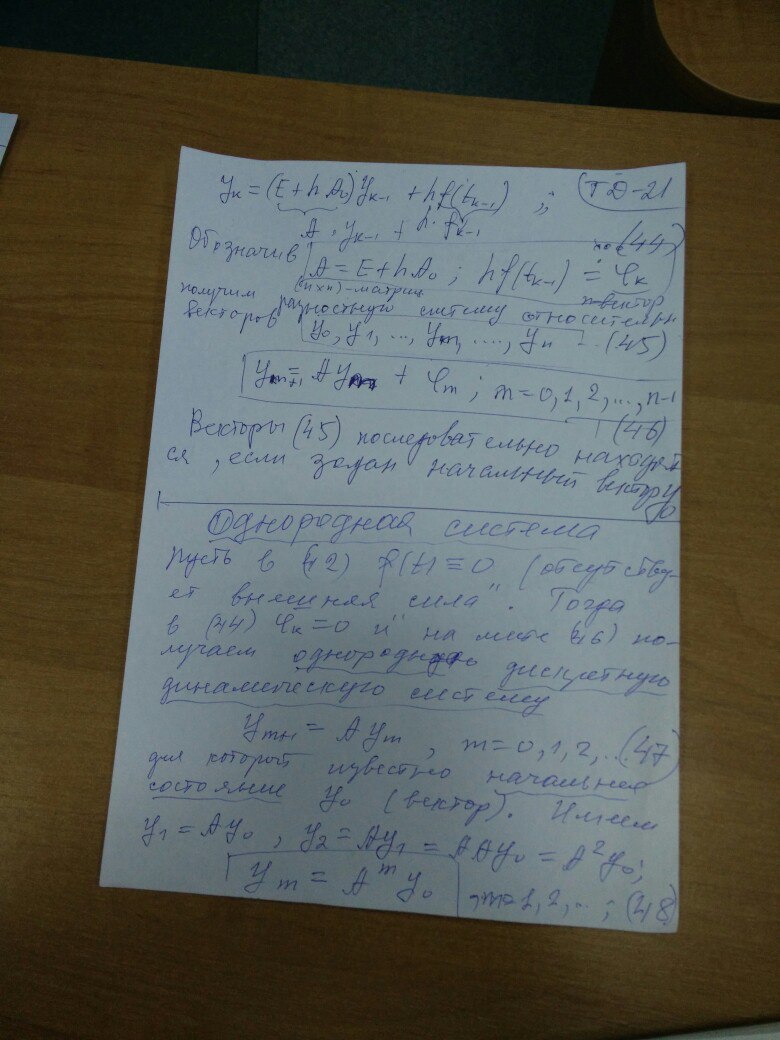 y_k = (E + hA_0) y_{k-1} + hf(t_{k-1}) ; (ТД-21
A · y_{k-1} + h · f_{k-1}
Обозначив (44)
A = E + hA_0 ; hf(t_{k-1}) = φ_k
(n×n)-матриц вектор
получим разностную систему относительн
векторов y_0, y_1, ..., y_m, ...., y_n - (45)
y_{m+1} = A y_m + φ_m ; m = 0, 1, 2, ..., n-1
(46)
Векторы (45) последовательно находят
ся, если задан начальный вектор y_0
Однородная система
Пусть в (42) f(t) ≡ 0 (отсутству-
ет внешняя сила". Тогда
в (44) φ_k = 0 и на месте (46) по-
лучаем однородную дискретную
динамическую систему
y_{m+1} = A y_m , m = 0, 1, 2, ... (47)
для которой известно начальное
состояние y_0 (вектор). Имеем
y_1 = Ay_0 , y_2 = Ay_1 = AAy_0 = A^2 y_0 ;
y_m = A^m y_0 , m = 1, 2, ... ; (48)